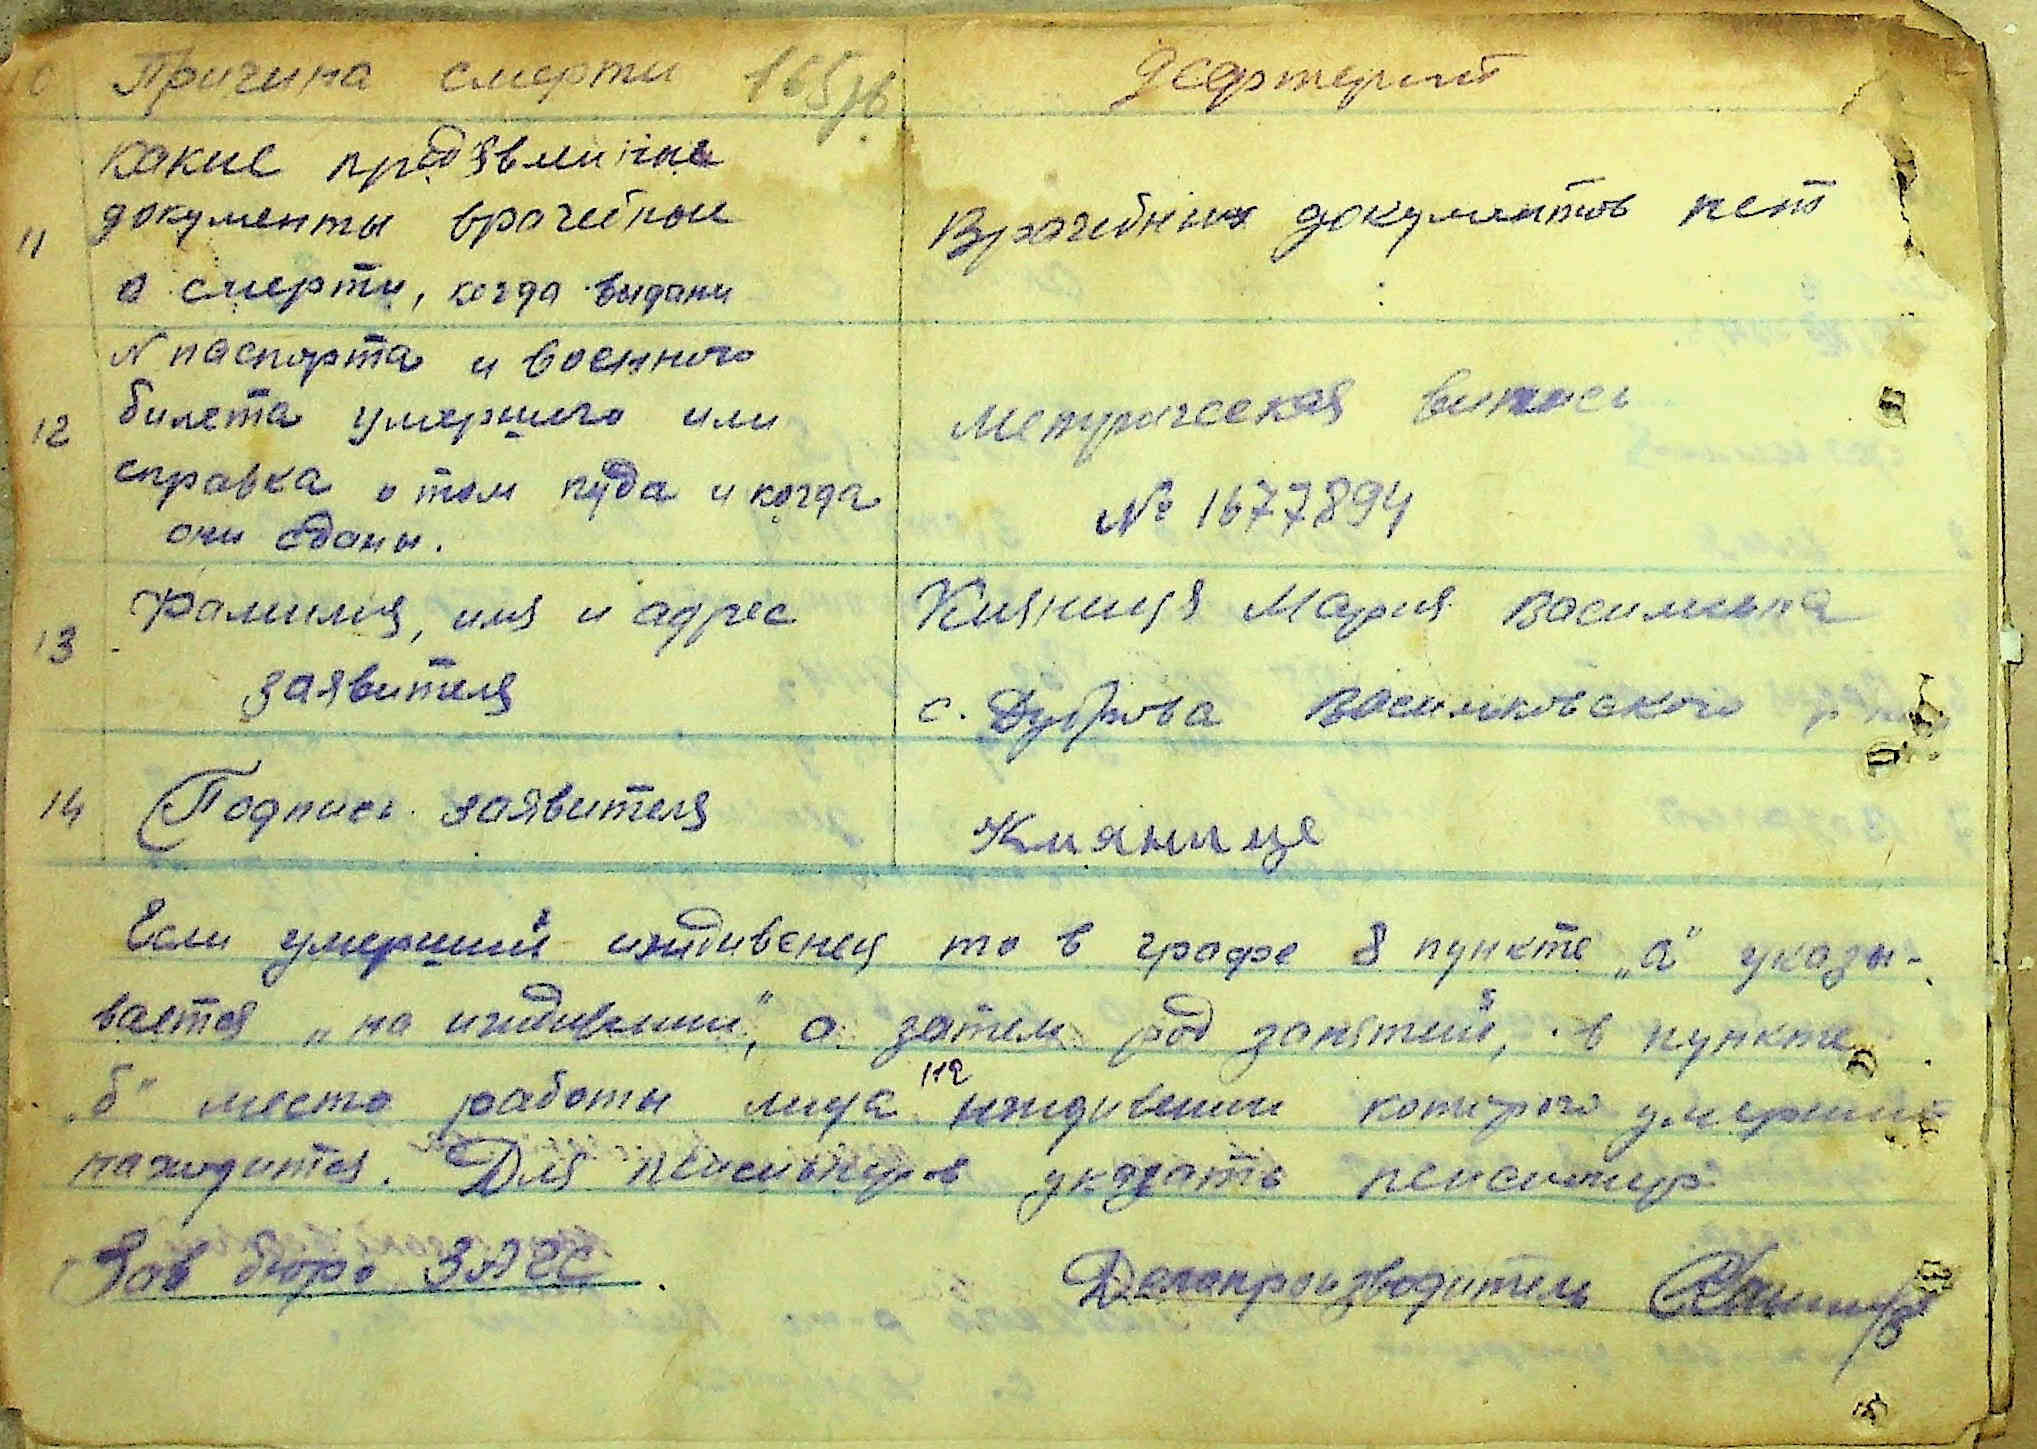 10 Причина смерти 165зв дефтерит
Какие предявлины
документы врачебные
11 Врачебных документов нет
о смерти, когда выдани
N паспорта и военного
12 билета умершего или Метрическая выпись
справка о том куда и когда № 1677894
они сданы.
13 Фамилия, имя и адрес Кияниця Мария Васильевна
заявителя с. Дуброва Васильковского р-на
14 Подпись заявителя Кияница
Если умерший иждивенец то в графе 8 пункте „а" указы-
вается „на иждивении", а затем род занятий, в пункте
„б" место работы лица на иждивении которого умерший
находится. Для пенсионеров указать пенсионер
Зав бюро ЗАГС. Делопроизводитель